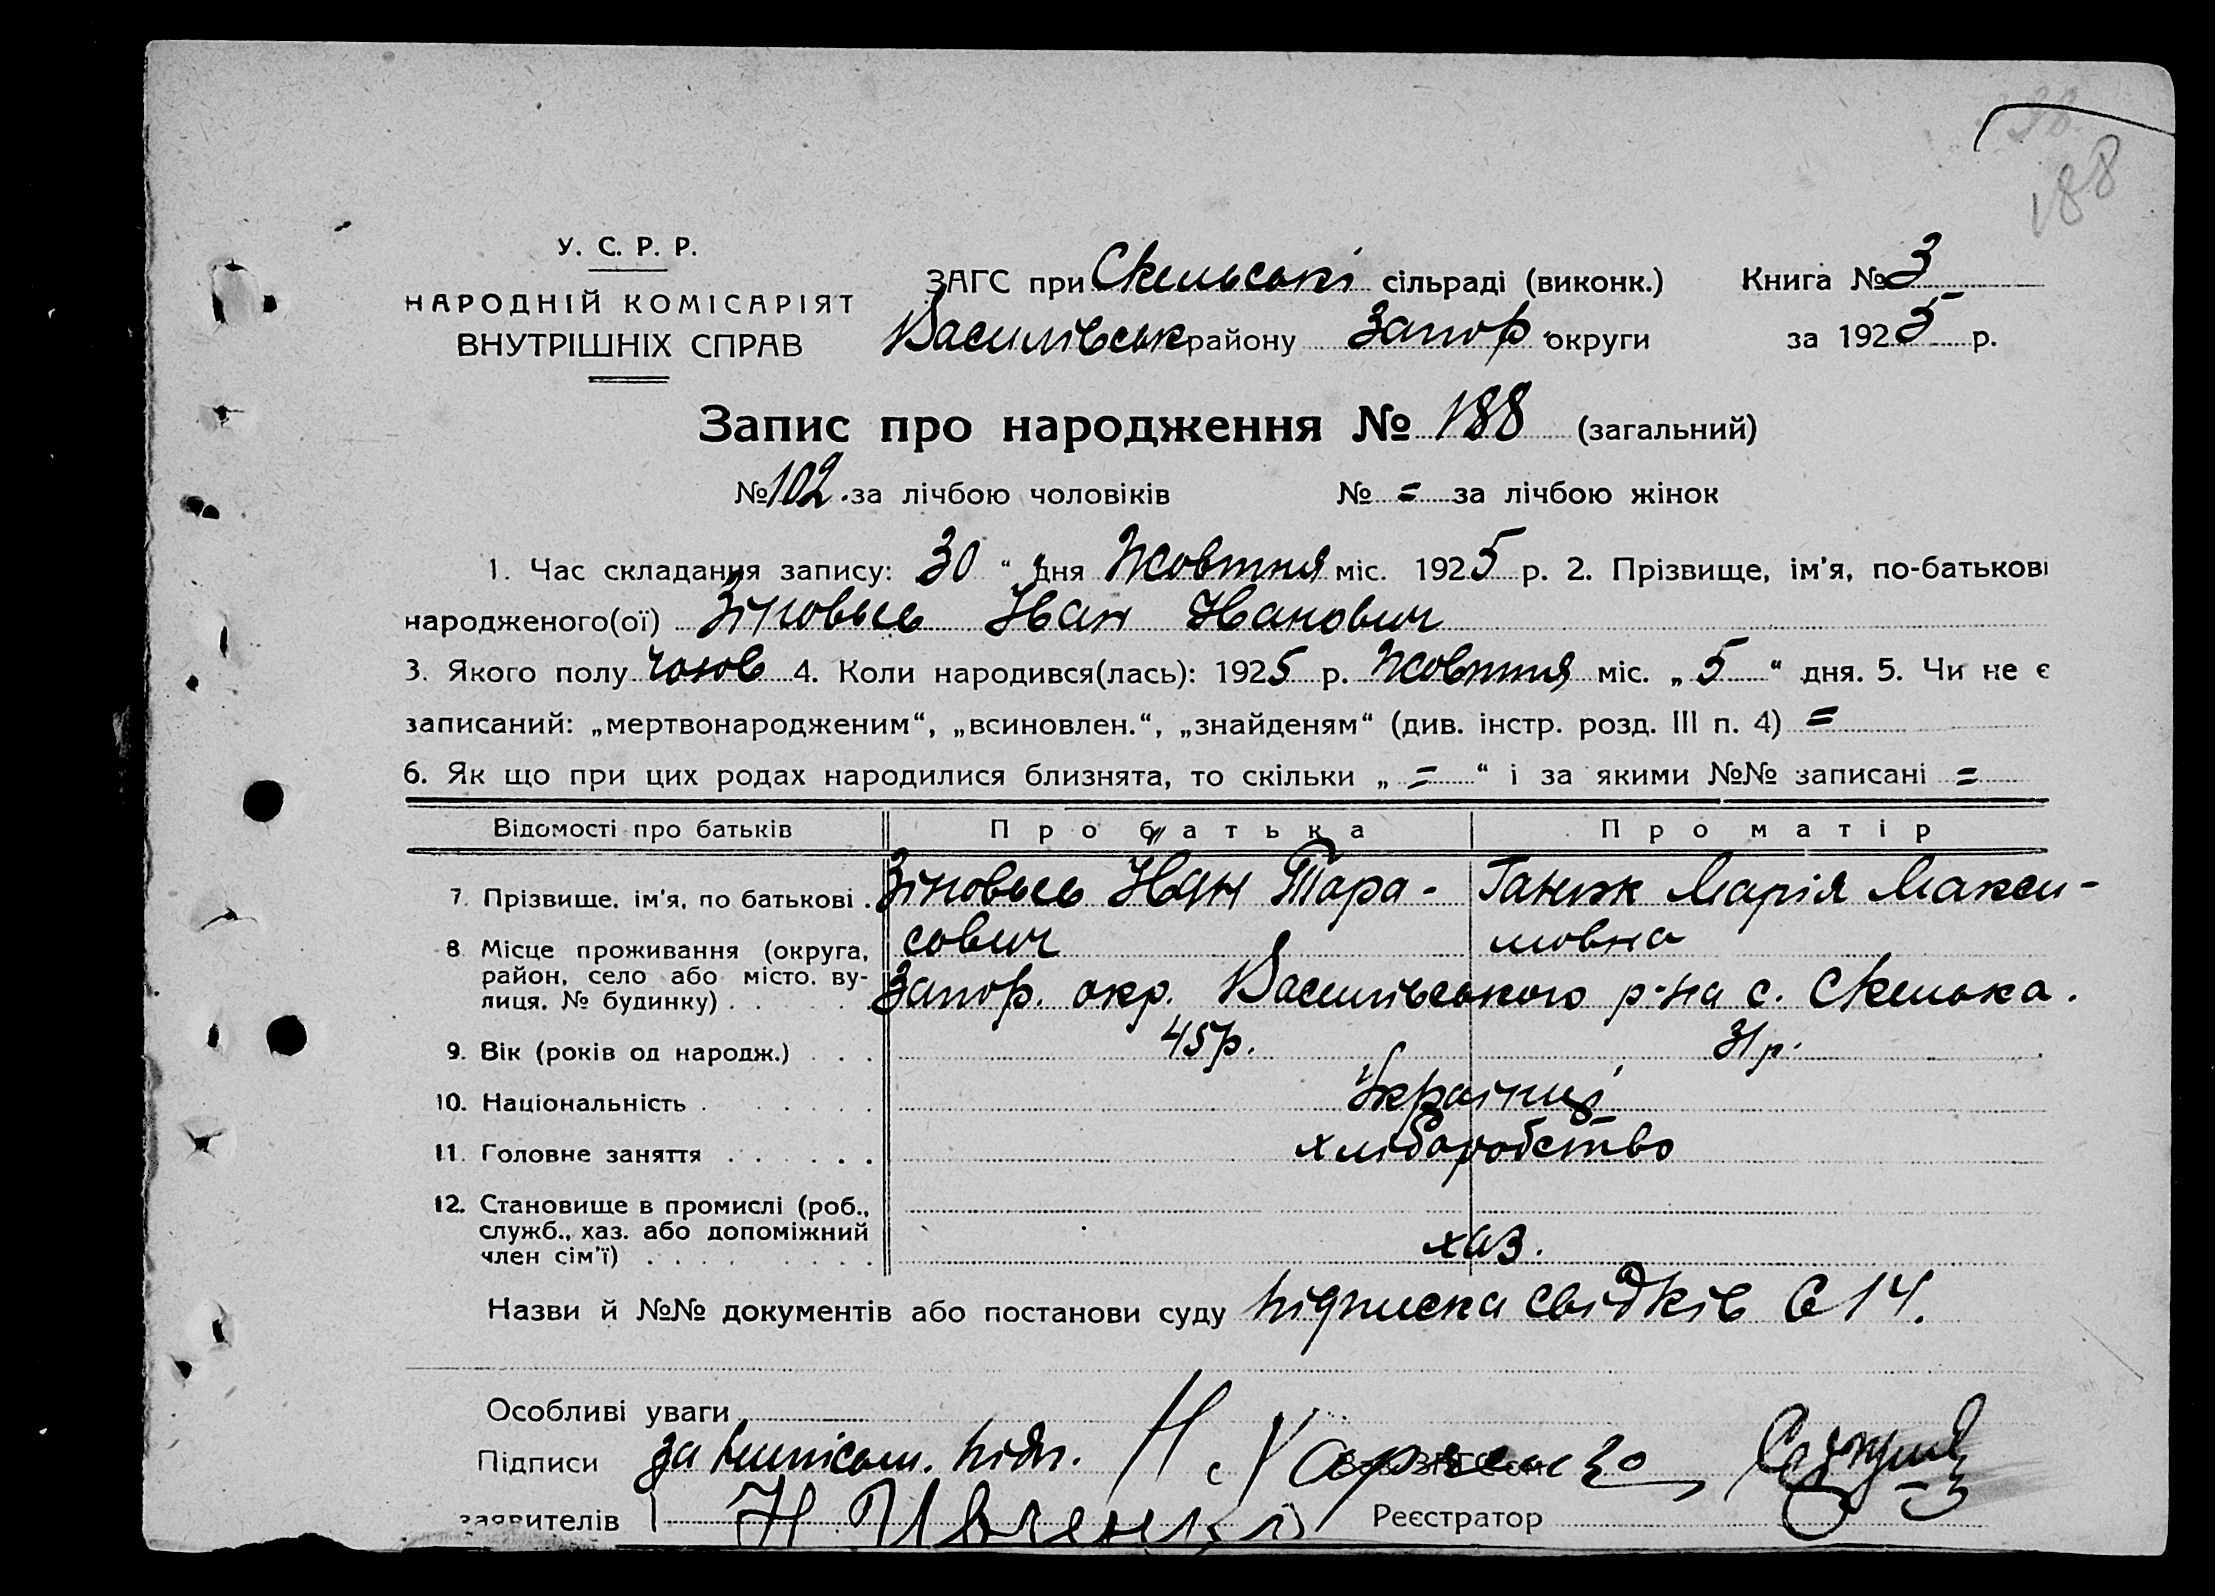 38.
188
У. С. Р. Р.
НАРОДНІЙ КОМІСАРІЯТ
ВНУТРІШНІХ СПРАВ
ЗАГС при Скельські сільраді (виконк.) Книга № 3
Василівськ району Запор. округи за 1925 р.
Запис про народження № 188 (загальний)
№ 102 за лічбою чоловіків № = за лічбою жінок
1. Час складання запису: 30 “ дня Жовтня міс. 1925 р. 2. Прізвище, ім’я, по-батькові
народженого(ої) Зіновьєв Іван Іванович
3. Якого полу чолов 4. Коли народився(лась): 1925 р. Жовтня міс. „ 5 “ дня. 5. Чи не є
записаний: „мертвонародженим“, „всиновлен.“, „знайденям“ (див. інстр. розд. III п. 4) =
6. Як що при цих родах народилися близнята, то скільки „ = “ і за якими №№ записані =
Відомості про батьків Про батька Про матір
7. Прізвище, ім’я, по батькові . Зіновьєв Іван Тара- Ганжк Марія Макси-
сович мовна
8. Місце проживання (округа, район, село або місто, ву-
лиця, № будинку) . . . Запор. окр. Василівського р-на с. Скелька.
9. Вік (років од народж.) . . . 45 р. 31 р.
10. Національність . . . . . Українці
11. Головне заняття . . . . . . хліборобство
12. Становище в промислі (роб.,
служб., хаз. або допоміжний
член сім’ї) . . . . . . . . хаз.
Назви й №№ документів або постанови суду підписка свідків 614.
Особливі уваги
Підписи за Н.
заявителів Н Ивченко Реєстратор